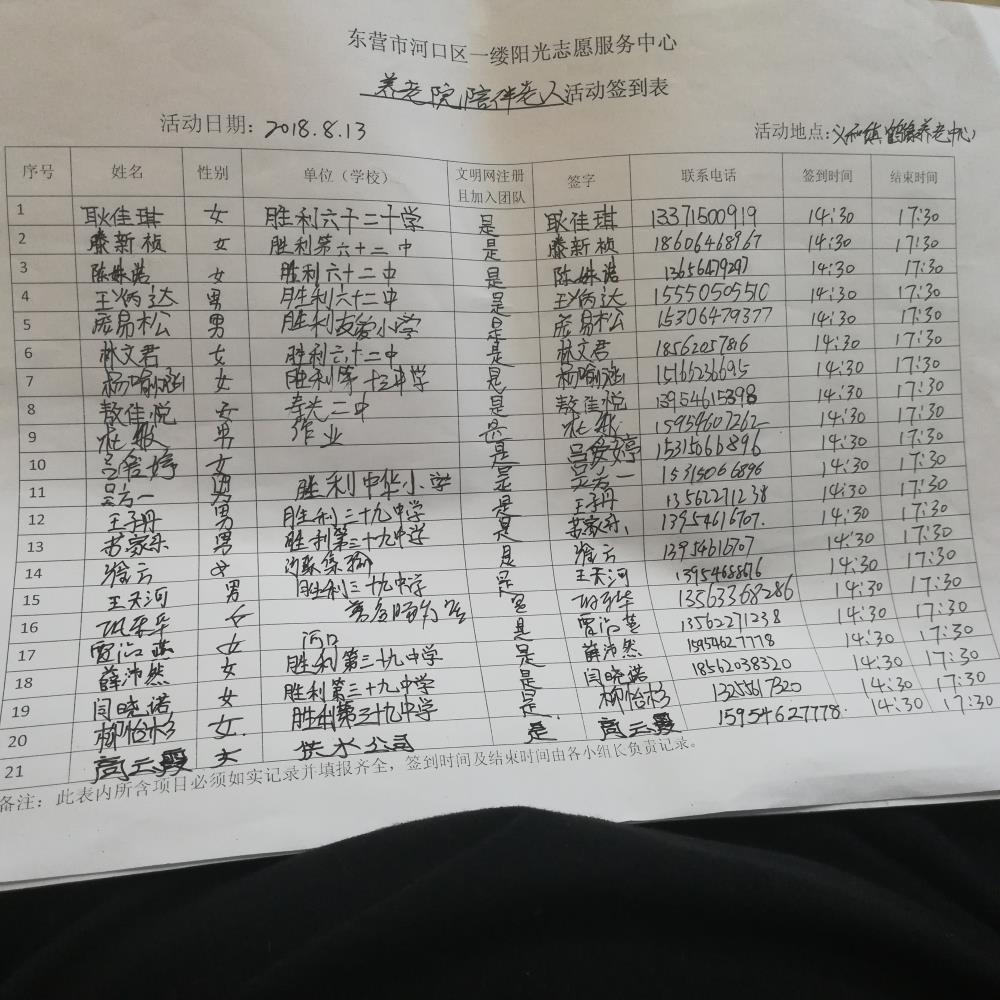 东营市河口区一缕阳光志愿服务中心
养老院陪伴老人活动签到表
活动日期：2018.8.13 活动地点：义和镇鹤缘养老中心
序号 姓名 性别 单位（学校） 文明网注册且加入团队 签字 联系电话 签到时间 结束时间
1 耿佳琪 女 胜利六十二中学 是 耿佳琪 13371500919 14:30 17:30
2 滕新桢 女 胜利第六十二中 是 滕新桢 18606468967 14:30 17:30
3 陈姝诺 女 胜利六十二中 是 陈姝诺 13656479297 14:30 17:30
4 王炳达 男 胜利六十二中 是 王炳达 15550505510 14:30 17:30
5 庞易松 男 胜利友爱小学 是 庞易松 15306479377 14:30 17:30
6 林文君 女 胜利六十二中 是 林文君 1856205786 14:30 17:30
7 杨喻涵 女 胜利第十三中学 是 杨喻涵 15166236695 14:30 17:30
8 敖佳悦 女 寿光二中 是 敖佳悦 13954615398 14:30 17:30
9 男 作业 是 15954607262 14:30 17:30
10 吕爱婷 女 是 吕爱婷 15315066896 14:30 17:30
11 吴方一 男 胜利中华小学 是 吴方一 15315066896 14:30 17:30
12 王子丹 男 胜利三十九中学 是 王子丹 13562271238 14:30 17:30
13 苏家乐 男 胜利第三十九中学 是 苏家乐 13954616707. 14:30 17:30
14 徐云 女 是 徐云 13954616707 14:30 17:30
15 王天河 男 胜利三十九中学 是 王天河 13954688676 14:30 17:30
16 女 是 13563368286 14:30 17:30
17 贾治燕 女 河口 是 13562271238 14:30 17:30
18 薛沛然 女 胜利第三十九中学 是 薛沛然 15954627778 14:30 17:30
19 闫晓诺 女 胜利第三十九中学 是 闫晓诺 18562038320 14:30 17:30
20 柳怡杉 女. 胜利第三十九中学 是 柳怡杉 13255617320 14:30 17:30
21 高云霞 女 供水公司 是 高云霞 15954627778. 14:30 17:30
备注：此表内所含项目必须如实记录并填报齐全，签到时间及结束时间由各小组长负责记录。